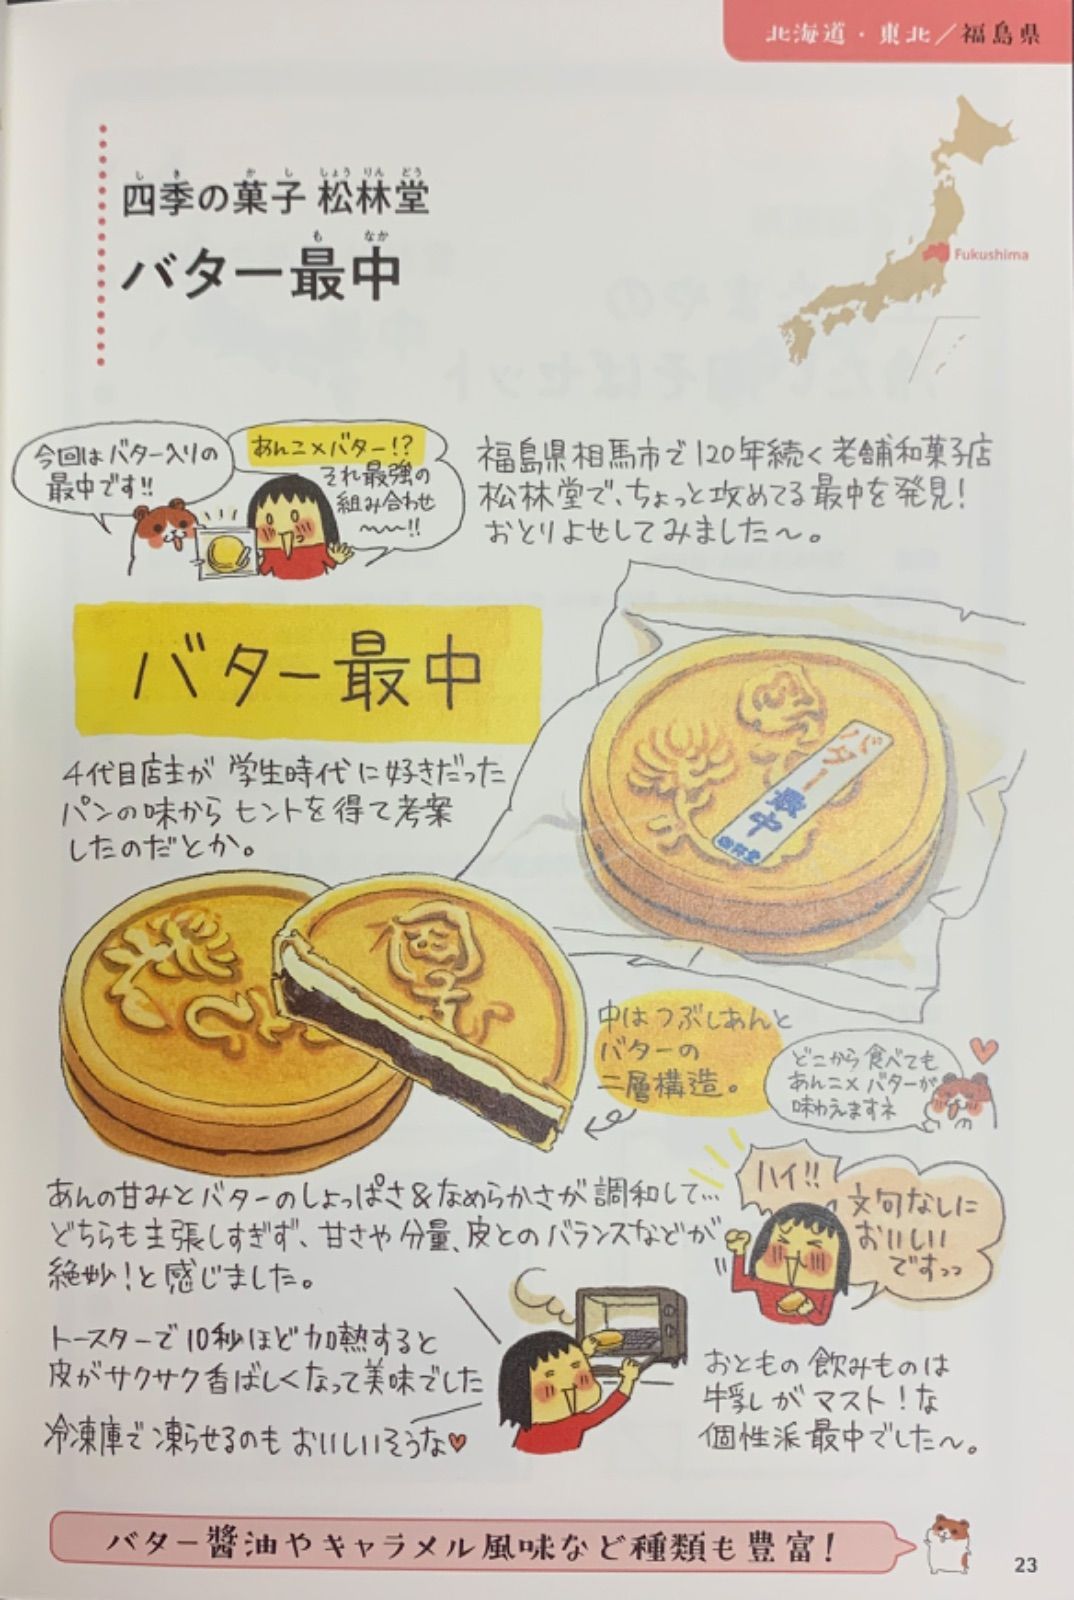 北海道・東北／福島県
四季の菓子 松林堂
しき かし しょうりんどう
バター最中
もなか
Fukushima
今回はバター入りの
最中です!!
あんこ×バター!?
それ最強の
組み合わせ
〜〜!!
福島県相馬市で120年続く老舗和菓子店
松林堂で、ちょっと攻めてる最中を発見!
おとりよせしてみました〜。
バター最中
4代目店主が学生時代に好きだった
パンの味からヒントを得て考案
したのだとか。
バター最中
松林堂
中はつぶしあんと
バターの
二層構造。
どこから食べても
あんこ×バターが
味わえますネ
あんの甘みとバターのしょっぱさ&なめらかさが調和して…
どちらも主張しすぎず、甘さや分量、皮とのバランスなどが
絶妙!と感じました。
ハイ!!
文句なしに
おいしい
ですっっ
トースターで10秒ほど加熱すると
皮がサクサク香ばしくなって美味でした
冷凍庫で凍らせるのもおいしいそうな♥
おともの飲みものは
牛乳がマスト!な
個性派最中でした〜。
バター醬油やキャラメル風味など種類も豊富!
23